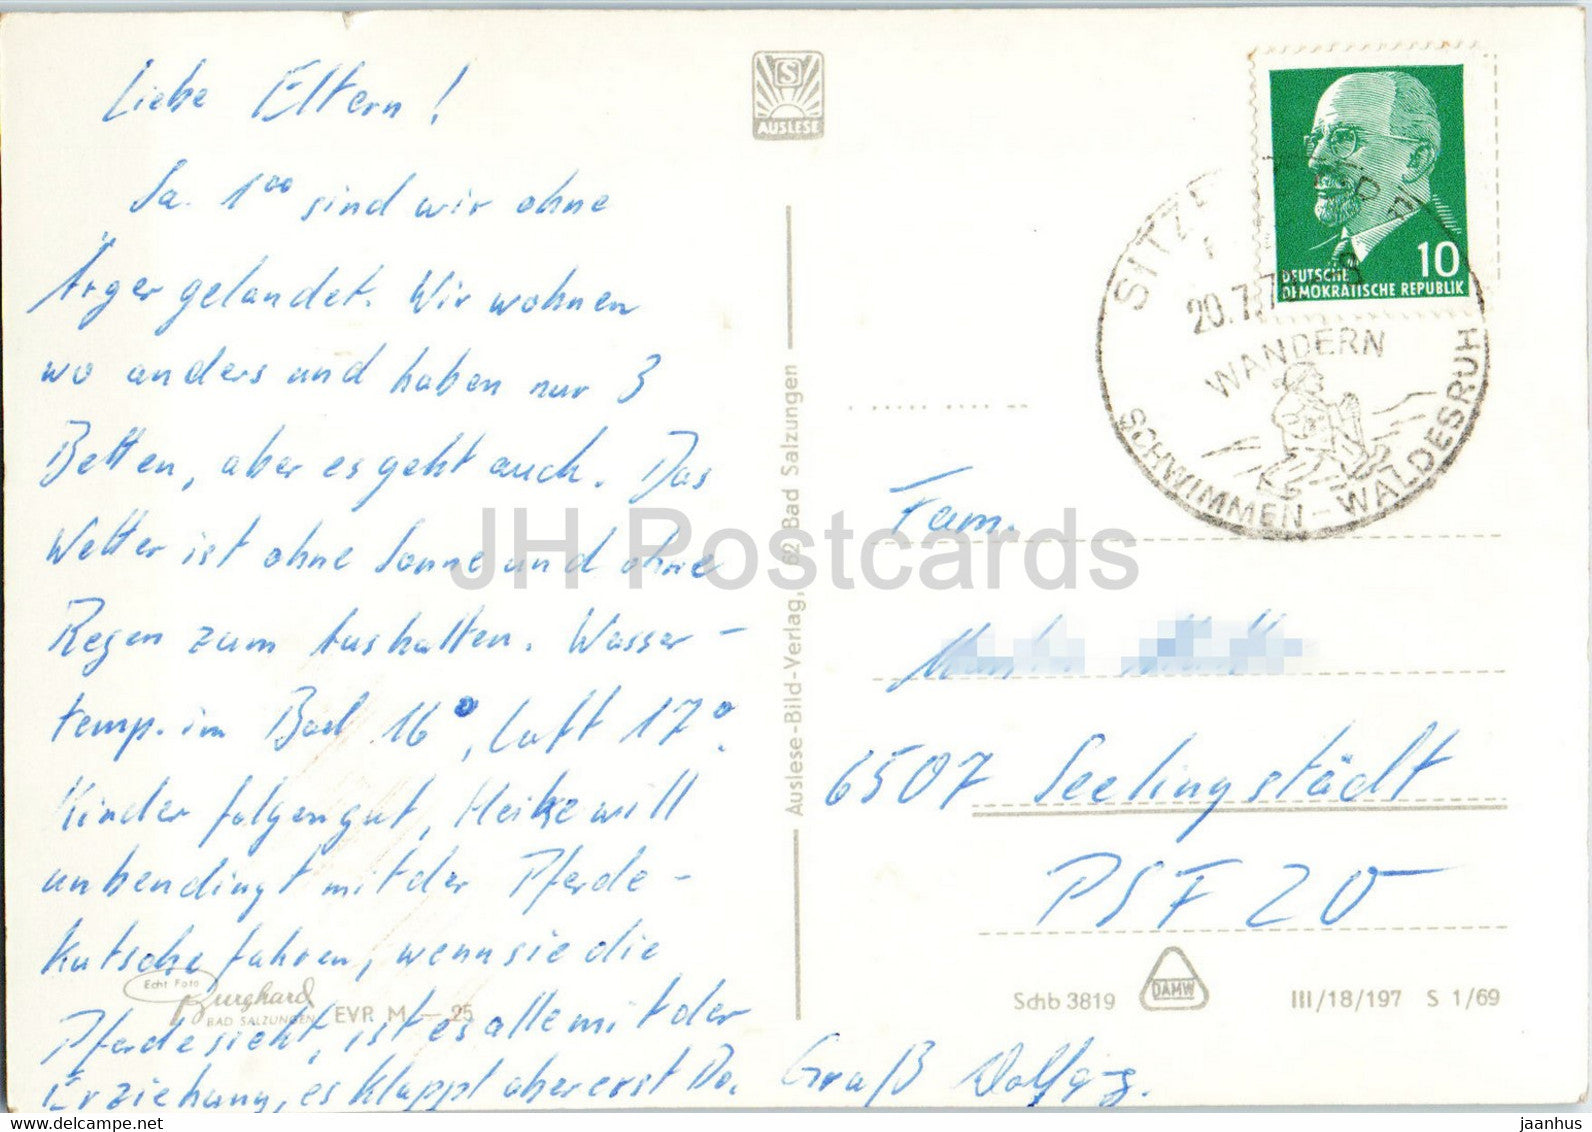 Liebe Eltern!
Sa. 1⁰⁰ sind wir ohne
Ärger gelandet. Wir wohnen
wo anders und haben nur 3
Betten, aber es geht auch. Das
Wetter ist ohne Sonne und ohne
Regen zum Aushalten. Wasser-
temp. im Bad 16°, Luft 17°.
Kinder folgen gut, Heike will
unbendingt mit der Pferde-
kutsche fahren, wenn sie die
Pferde sieht, ist es alle mit der
Erziehung, es klappt aber erst Do. Gruß Wolfgang.
Echt Foto
Burghard
BAD SALZUNGEN
EVP M -.25
S
AUSLESE
Auslese-Bild-Verlag, 62 Bad Salzungen
10
DEUTSCHE
DEMOKRATISCHE REPUBLIK
20.7.7
WANDERN
SCHWIMMEN-WALDESRUH
Fam.
6507 Seelingstädt
PSF 20
Schb 3819
DAMW
III/18/197 S 1/69
JH Postcards
delcampe.net
jaanhus